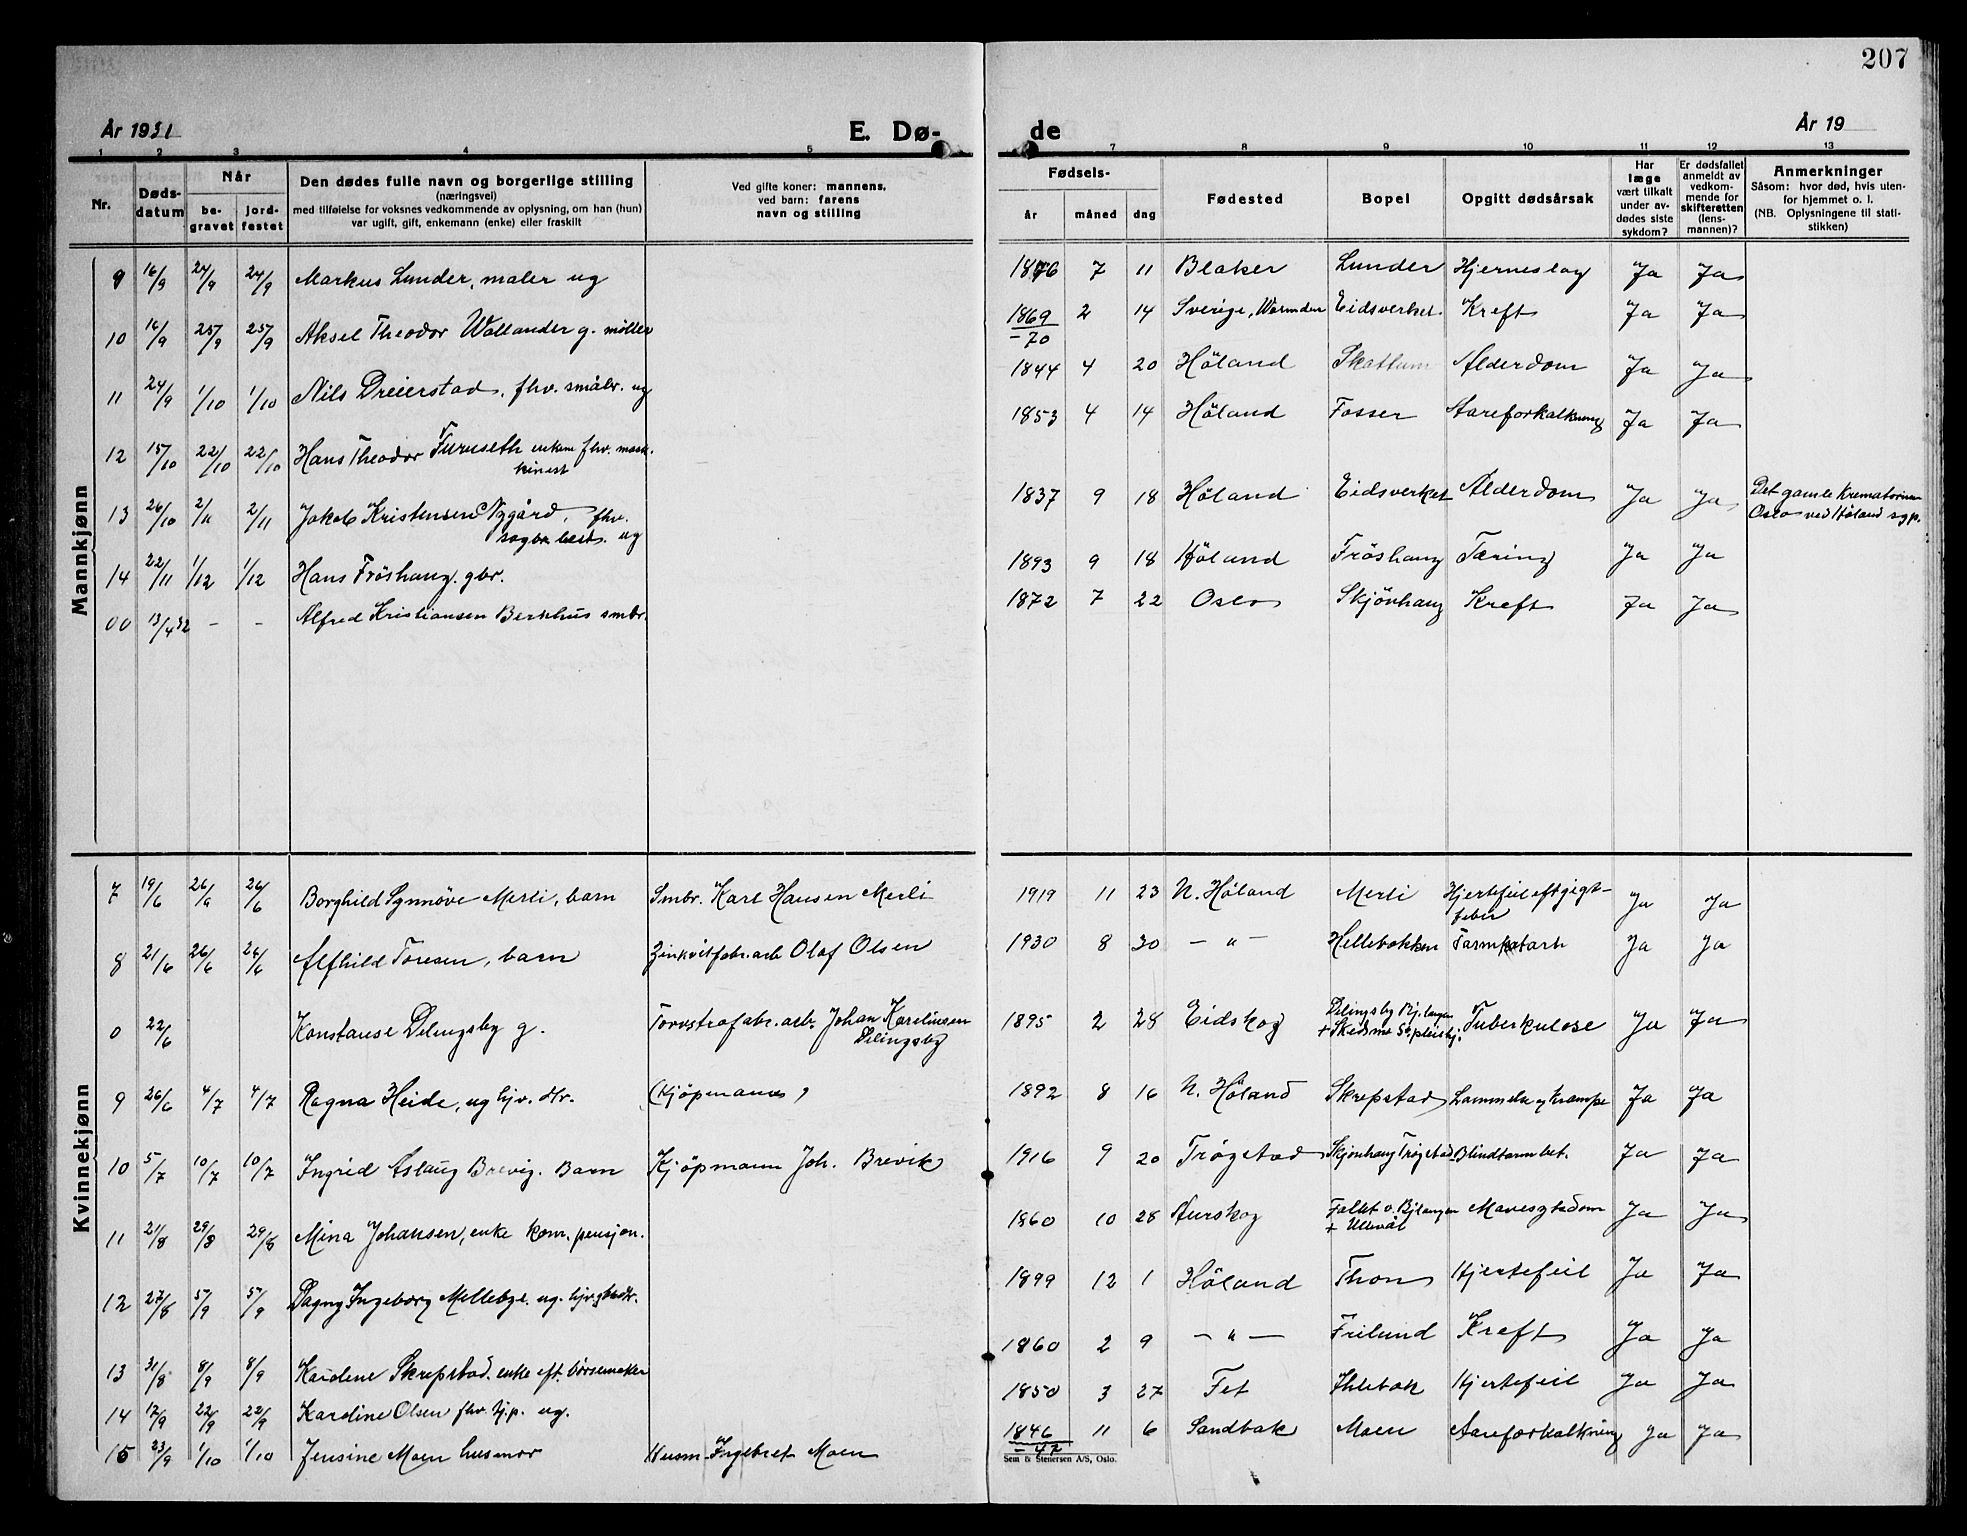 207
År 1931
E. Dø-
de
År 19
1 2 3 4 5 7 8 9 10 11 12 13
Nr.
Døds-
datum
Når
be-
gravet
jord-
festet
Den dødes fulle navn og borgerlige stilling
(næringsvei)
med tilføielse for voksnes vedkommende av oplysning, om han (hun)
var ugift, gift, enkemann (enke) eller fraskilt
Ved gifte koner: mannens,
ved barn: farens
navn og stilling
Fødsels-
år måned dag
Fødested
Bopel
Opgitt dødsårsak
Har
læge
vært tilkalt
under av-
dødes siste
sykdom?
Er dødsfallet
anmeldt av
vedkom-
mende for
skifteretten
(lens-
mannen)?
Anmerkninger
Såsom: hvor død, hvis uten-
for hjemmet o. l.
(NB. Oplysningene til stati-
stikken)
Mannkjønn
9 16/9 24/9 24/9 Markus Lunder, maler ug 1876 7 11 Blaker Lunder Hjerneslag Ja Ja
10 16/9 25/9 25/9 Aksel Theodor Wallander g. møller 1869 2 14 Sverige, Eidsverket Kreft Ja Ja
-70
11 24/9 1/10 1/10 Nils Dreierstad, fhv. småbr. ug 1844 4 20 Höland Alderdom Ja Ja
12 15/10 22/10 22/10 Hans Theodor Furuseth enkem fhv. mask- 1853 4 14 Höland Fosser Aareforkalkning Ja Ja
kinist
13 26/10 2/11 2/11 Jakob Kristensen Nygård, fhv. 1837 9 18 Höland Eidsverket Alderdom Ja Ja Det gamle Krematorium
sagbr. best. ug Oslo ved Höland sgp.
14 22/11 1/12 1/12 Hans Fröshaug. gbr. 1893 9 18 Höland Fröshaug Tæring Ja Ja
00 13/4 32 - - Alfred Kristiansen Berkhus smbr. 1872 7 22 Oslo Skjönhaug Kreft Ja Ja
Kvinnekjønn
7 19/6 26/6 26/6 Borghild Synnöve Merli, barn Smbr. Karl Hansen Merli 1919 11 23 N. Höland Merli Hjertefeil eft gigt-
feber Ja Ja
8 21/6 26/6 26/6 Alfhild Toresen, barn Zinkvitfabr. arb Olaf Olsen 1930 8 30 - " - Hellebakken Tarmkatarh Ja Ja
0 22/6 Konstanse Delingsby g. Torvströfabr. arb. Johan Karelinsen 1895 2 28 Eidskog Delingsby Bj.langen Tuberkulose Ja Ja
Delingsby + Skedsmo
9 26/6 4/7 4/7 Ragna Heide, ug hjv. dtr. (Kjöpmanns) 1892 8 16 N. Höland Skrepstad Lammelse og Krampe Ja Ja
10 5/7 10/7 10/7 Ingrid Aslaug Brevig. Barn Kjöpmann Joh. Brevik 1916 9 20 Trögstad Skjönhaug Trögstad Blindtarm bet. Ja Ja
11 21/8 29/8 29/8 Mina Johansen, enke kom. pensjon. 1860 10 28 Aurskog Fallet v. Bjlangen Mavesygdom Ja Ja
+ Ullevål
12 27/8 5/9 5/9 Dagny Ingeborg Mellebye. ug. hjv. gbrdtr. 1899 12 1 Höland Thon Hjertefeil Ja Ja
13 31/8 8/9 8/9 Karolene Skrepstad. enke eft. börsemaker 1860 2 9 - " - Frilund Kreft Ja Ja
14 17/9 22/9 22/9 Karoline Olsen fhv. tj.p. ug. 1850 3 27 Fet Ihlebæk Hjertefeil Ja Ja
15 23/9 1/10 1/10 Jensine Moen husmor Husm. Ingebret Moen 1846 11 6 Sandbæk Moen Aareforkalkning Ja Ja
-47
Sem & Stenersen A/S, Oslo.